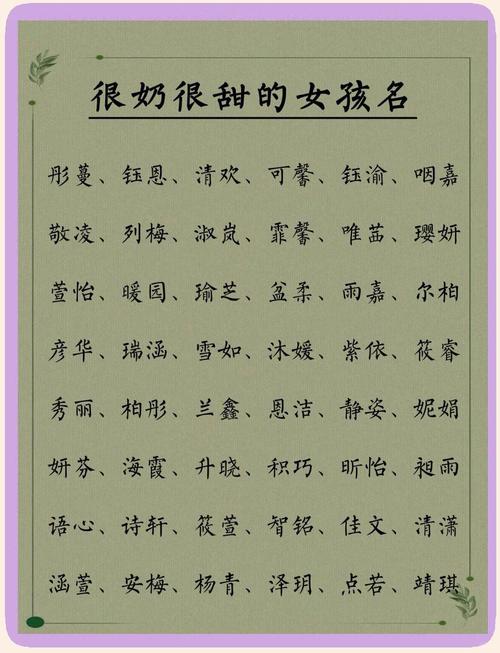 很奶很甜的女孩名
彤蔓、钰恩、清欢、可馨、钰渝、咽嘉
敬凌、列梅、淑岚、霏馨、唯茁、璎妍
萱怡、暖园、瑜芝、盆柔、雨嘉、尔柏
彦华、瑞涵、雪如、沐媛、紫依、筱睿
秀丽、柏彤、兰鑫、恩洁、静姿、妮娟
妍芬、海霞、升晓、积巧、昕怡、昶雨
语心、诗轩、筱萱、智铭、佳文、清潇
涵萱、安梅、杨青、泽玥、点若、靖琪